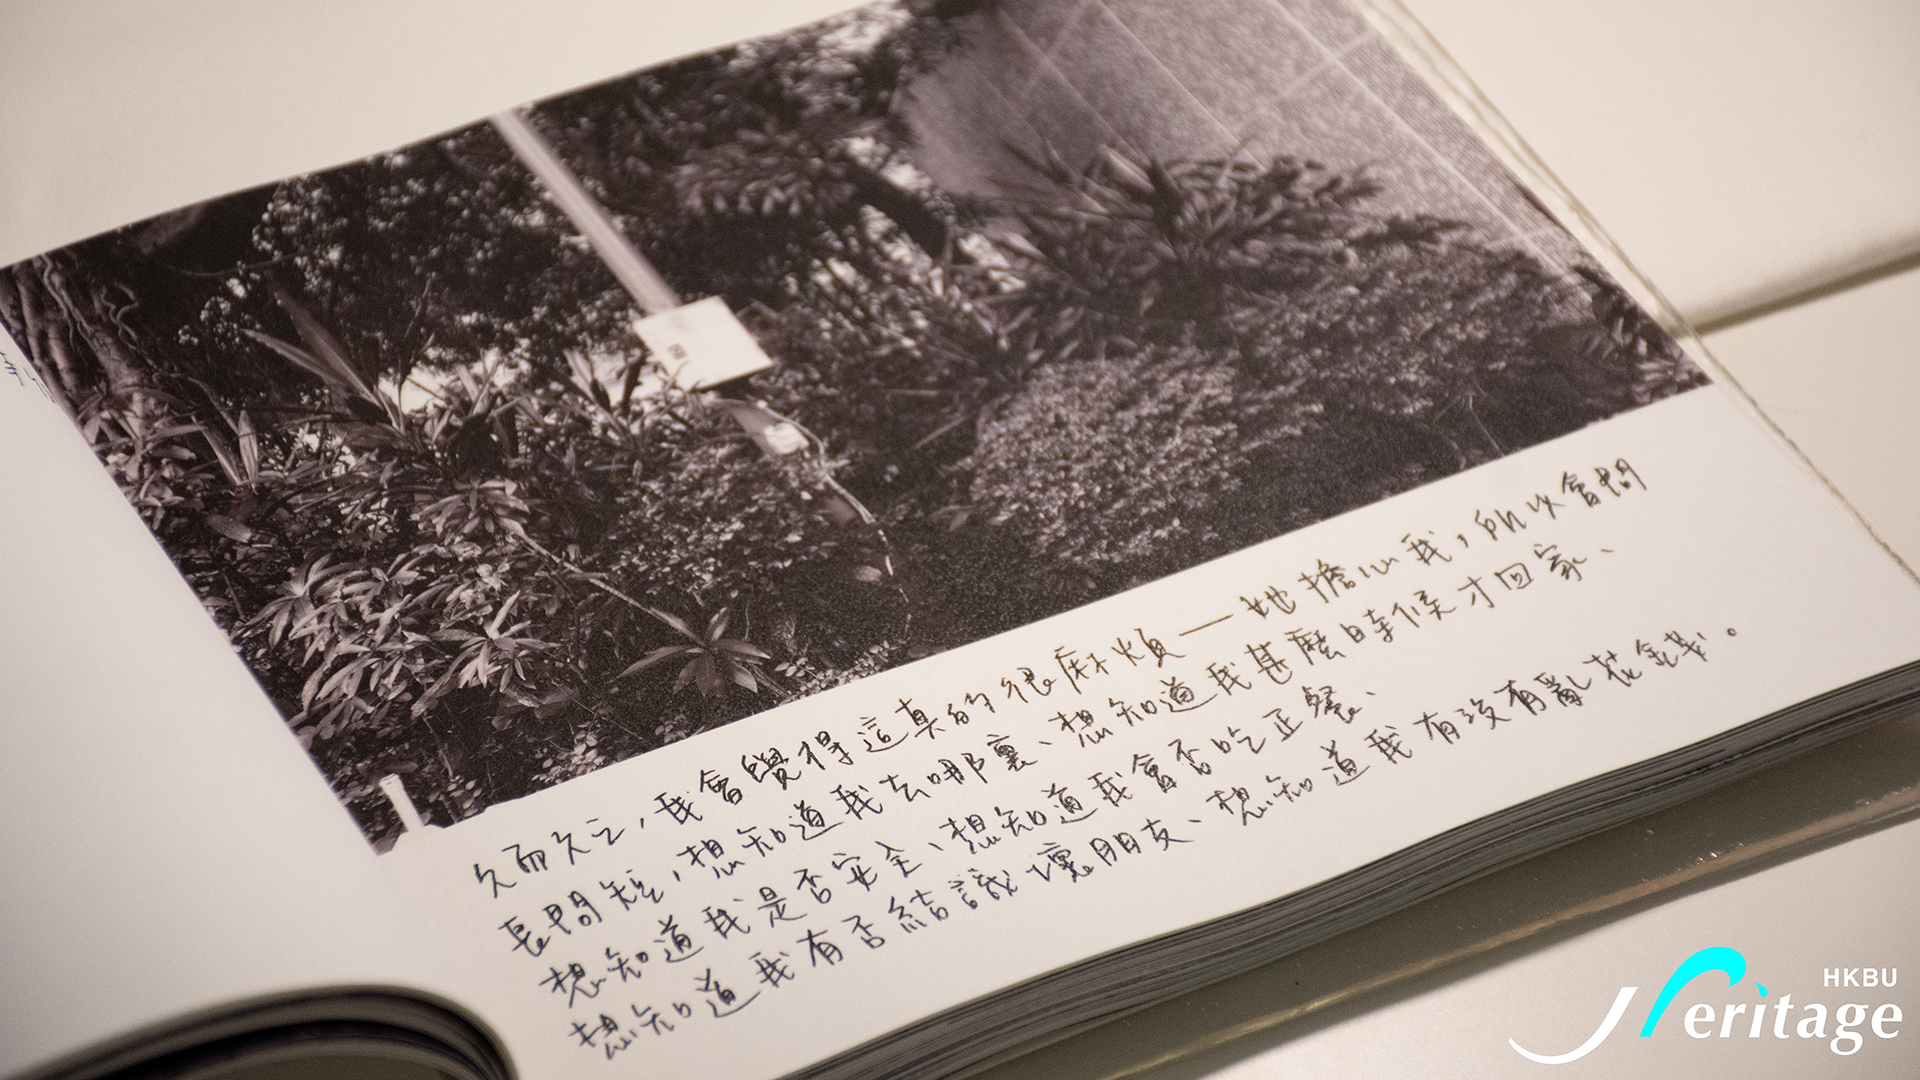 久而久之，我會覺得這真的很麻煩——她擔心我，所以會問
長問短，想知道我去哪裏、想知道我甚麼時候才回家、
想知道我是否安全、想知道我會否吃正餐、
想知道我有否結識壞朋友、想知道我有沒有亂花金錢。
HKBU
Heritage